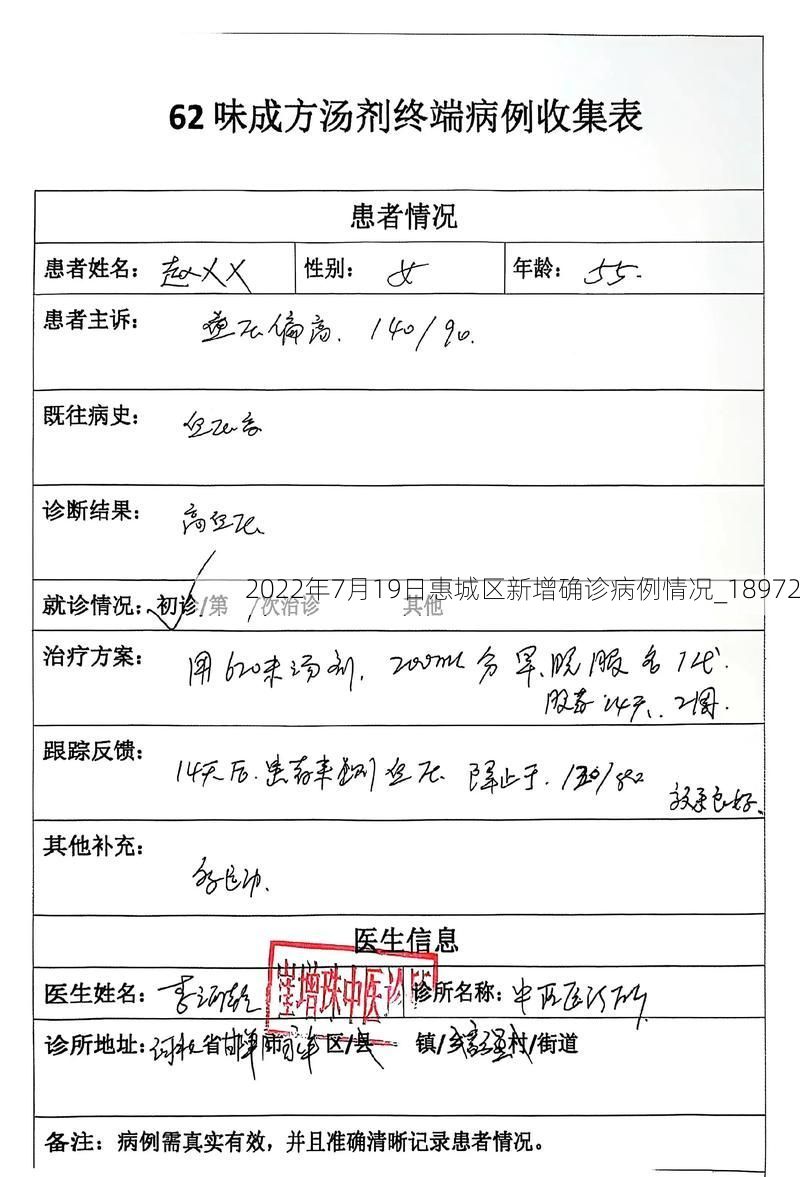 62 味成方汤剂终端病例收集表
患者情况
患者姓名： 赵XX 性别： 女 年龄： 55.
患者主诉： 血压偏高. 140/90.
既往病史： 血压高
诊断结果： 高血压
2022年7月19日惠城区新增确诊病例情况_18972
就诊情况： 初诊/第 /次治诊 其他
治疗方案： 用62味汤剂, 200ml 分早、晚服各1代.
服药14天、2周.
跟踪反馈： 14天后. 患者来 血压
效果良好.
其他补充：
医生信息
医生姓名： 李 诊所名称： 中医诊所
崔增珠中医诊所
诊所地址: 河北省邯郸市 区/县 镇/乡 村/街道
备注：病例需真实有效，并且准确清晰记录患者情况。